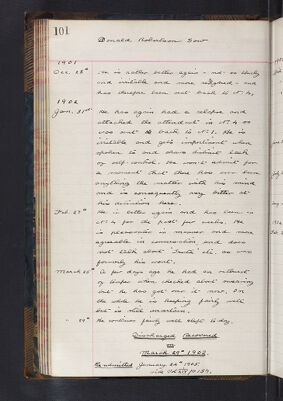 101
Donald Robertson Gow
1901
Dec. 28th He is rather better again - not so
and irritable and more - and
has therefore been sent back to
1902
Jan. 31st He has again had a relapse and
attacked the attendant in No. 4 so
was sent back to No. 1. He is
irritable and gets impertinent when
spoken to and shows distinct lack
of self-control. He won't admit for
a moment that there has ever been
anything the matter with his mind
and is consequently very bitter at
his detention here.
Feb. 27th He is better again and has been in
No. 4 for the past few weeks. He
is pleasanter in manner and more
agreeable in conversation and does
not talk about as was
formerly his wont.
March 25th A few days ago he had an outburst
of temper when checked about
but he has got over it now. On
the whole he is keeping fairly well
but is still
" 29th He continues fairly well. Left to-day.
Discharged Recovered
on
March 29th 1902.
Re-admitted January 24th 1905.
vide p. 137.